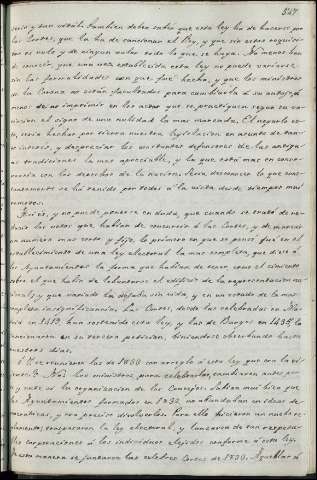 527
serio y tan vital: tambien deben saber que esta ley ha de hacerse por
las Cortes, que la ha de sancionar el Rey, y que sin estos requisi-
tos es nulo y de ningun valor todo lo que se haga. No menos han
de conocer, que una vez establecida esta ley no puede variarse
sin las formalidades con que fué hecha, y que los ministros
de la Corona no están facultados para cambiarla á su antojo, á
menos de no imprimir en los actos que se practiquen segun su va-
riacion el signo de una nulidad la mas marcada. El negarlo es-
to, sería hechar por tierra nuestra legislacion en asunto de tan-
to interés, y despreciar los constantes defensores de las antiguas
tradiciones la mas apreciable, y la que está mas en conso-
nancia con los derechos de la nacion. Sería desconocer lo que cons-
tantemente se ha tenido por todos á la vista desde tiempos muy
remotos.
Así es, y no puede ponerse en duda, que cuando se trató de re-
ducir los votos que habian de concurrir á las Cortes, y de marcar
un número mas corto y fijo, lo primero en que se pensó fué en el
establecimiento de una ley electoral la mas completa, que diera á
los Ayuntamientos la forma que habian de tener como el cimiento
sobre el que habia de labrarse el edificio de la representacion na-
cional; y que variado ha dejado sin vida, y en un estado de la mas
completa insignificancia. Las Cortes, desde las celebradas en Ma-
drid en 1419, han sostenido esta ley, y las de Burgos en 1435, la
sancionaron en su tercera peticion, viniéndose observando hasta
nuestros dias.
¿Se reunieron las de 1830 con arreglo á esta ley que era la vi-
gente? No: los ministros para celebrarlas cambiaron antes por
y ante sí la organizacion de los Concejos. Sabian muy bien que
los Ayuntamientos formados en 1832 no abundaban en ideas de-
mocráticas, y era preciso disolverlos. Para ello hicieron un nuevo re-
glamento; traspasaron la ley electoral, y lanzaron de tan respeta-
bles corporaciones á los individuos elejidos conforme á esta ley.
De esta manera se juntaron las célebres Cortes de 1830. Aquellas á